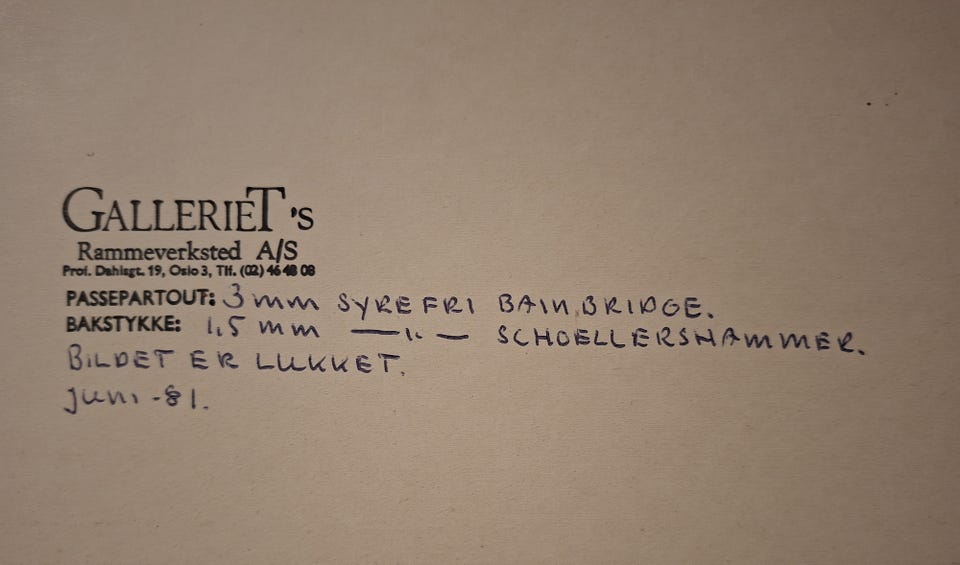 GALLERIET's
Rammeverksted A/S
Prof. Dahlsgt. 19, Oslo 3, Tlf. (02) 46 48 08
PASSEPARTOUT: 3 mm SYREFRI BAINBRIDGE.
BAKSTYKKE: 1,5 mm —"— SCHOELLERSHAMMER.
BILDET ER LUKKET.
Juni -81.